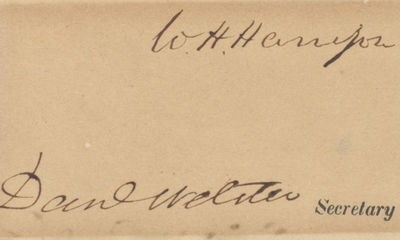 W. H. Harrison
Danl Webster Secretary